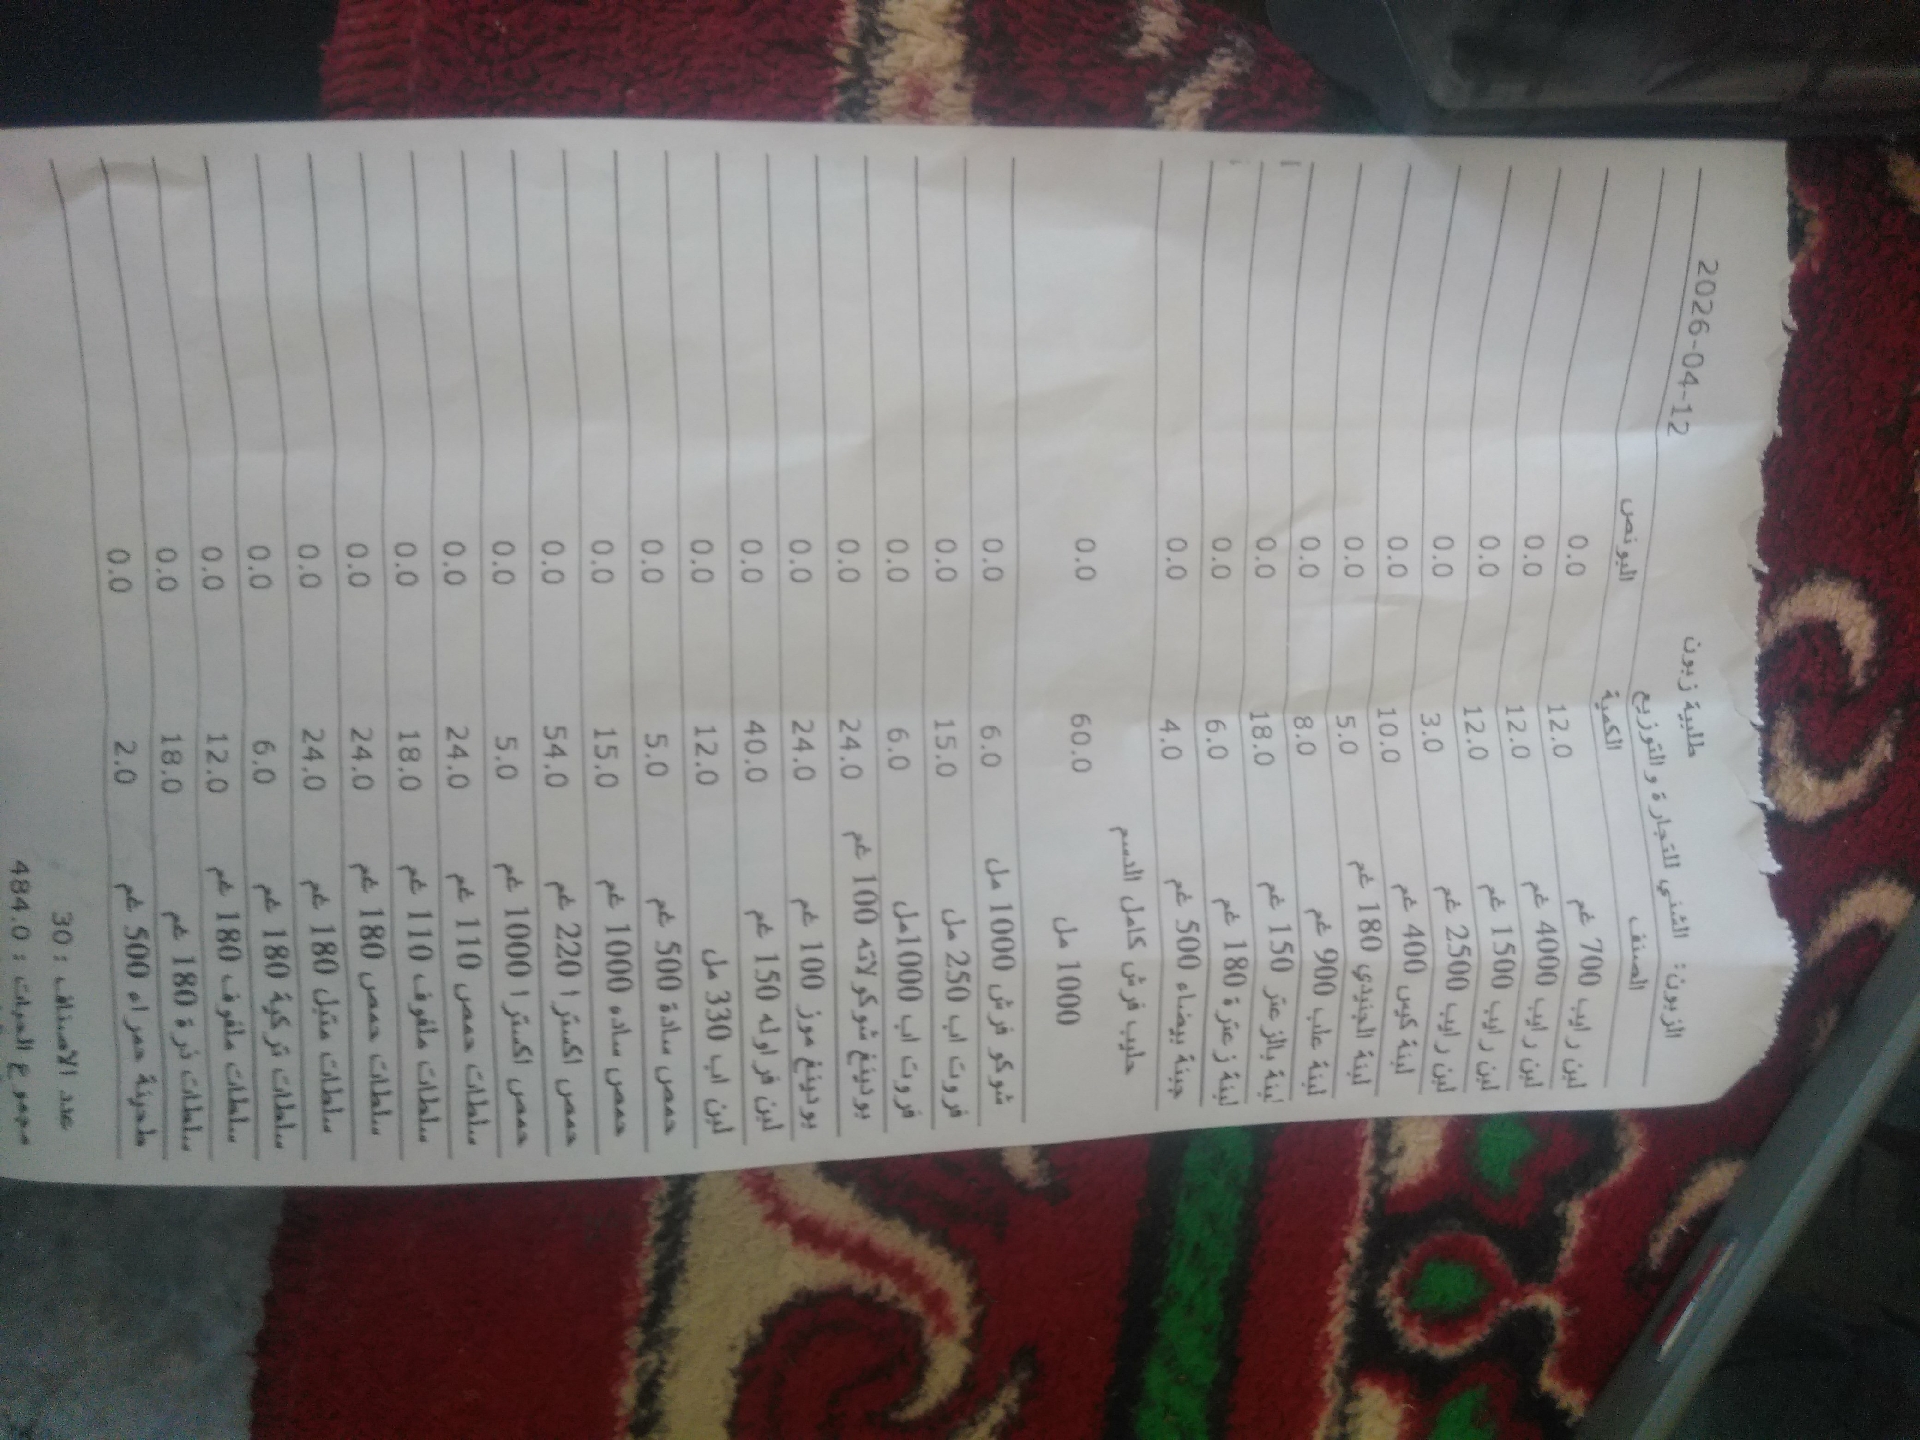 طلبية زبون 2026-04-12
الزبون: الشني للتجارة و التوزيع
الصنف الكمية البونص
لبن رايب 700 غم 12.0 0.0
لبن رايب 4000 غم 12.0 0.0
لبن رايب 1500 غم 12.0 0.0
لبن رايب 2500 غم 3.0 0.0
لبنة كيس 400 غم 10.0 0.0
لبنة الجنيدي 180 غم 5.0 0.0
لبنة علب 900 غم 8.0 0.0
لبنة بالزعتر 150 غم 18.0 0.0
لبنة زعترة 180 غم 6.0 0.0
جبنة بيضاء 500 غم 4.0 0.0
حليب فرش كامل الدسم
1000 مل 60.0 0.0
شوكو فرش 1000 مل 6.0 0.0
فروت اب 250 مل 15.0 0.0
فروت اب 1000مل 6.0 0.0
بودينغ شوكولاته 100 غم 24.0 0.0
بودينغ موز 100 غم 24.0 0.0
لبن فراوله 150 غم 40.0 0.0
لبن اب 330 مل 12.0 0.0
حمص سادة 500 غم 5.0 0.0
حمص ساده 1000 غم 15.0 0.0
حمص اكسترا 220 غم 54.0 0.0
حمص اكسترا 1000 غم 5.0 0.0
سلطات حمص 110 غم 24.0 0.0
سلطات ملفوف 110 غم 18.0 0.0
سلطات حمص 180 غم 24.0 0.0
سلطات متبل 180 غم 24.0 0.0
سلطات تركية 180 غم 6.0 0.0
سلطات ملفوف 180 غم 12.0 0.0
سلطات ذرة 180 غم 18.0 0.0
طحينة حمراء 500 غم 2.0 0.0
عدد الاصناف : 30
مجموع الحبات : 484.0